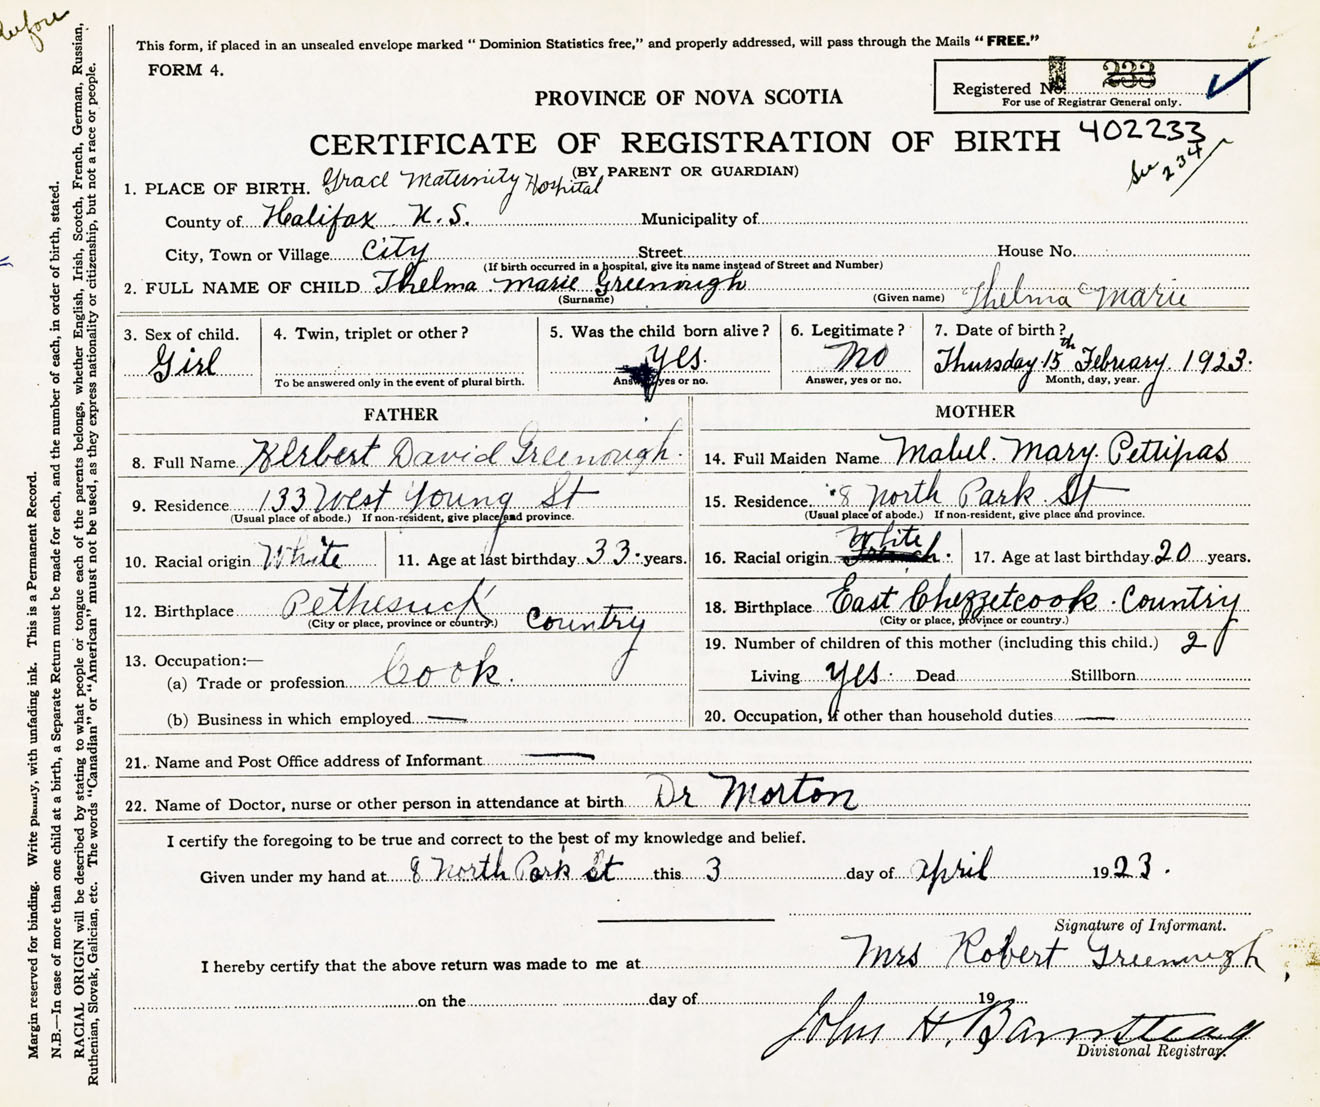 before
This form, if placed in an unsealed envelope marked “ Dominion Statistics free,” and properly addressed, will pass through the Mails “ FREE.”
FORM 4.
Registered No. 233
For use of Registrar General only.
PROVINCE OF NOVA SCOTIA
CERTIFICATE OF REGISTRATION OF BIRTH 402233
(BY PARENT OR GUARDIAN)
See 234
1. PLACE OF BIRTH. Grace Maternity Hospital
County of Halifax N.S. Municipality of
City, Town or Village City Street House No.
(If birth occurred in a hospital, give its name instead of Street and Number)
2. FULL NAME OF CHILD Thelma Marie Greenough Thelma Marie
(Surname) (Given name)
3. Sex of child. Girl
4. Twin, triplet or other?
To be answered only in the event of plural birth.
5. Was the child born alive? Yes.
Answer, yes or no.
6. Legitimate? No
Answer, yes or no.
7. Date of birth? Thursday 15th February. 1923.
Month, day, year.
FATHER
8. Full Name Herbert David Greenough.
9. Residence 133 West Young St
(Usual place of abode.) If non-resident, give place and province.
10. Racial origin White 11. Age at last birthday 33 years.
12. Birthplace Pethesuck Country
(City or place, province or country.)
13. Occupation:—
(a) Trade or profession Cook.
(b) Business in which employed —
MOTHER
14. Full Maiden Name Mabel. Mary. Pettipas
15. Residence 8 North Park St
(Usual place of abode.) If non-resident, give place and province.
16. Racial origin White French. 17. Age at last birthday 20 years.
18. Birthplace East Chezzetcook. Country
(City or place, province or country.)
19. Number of children of this mother (including this child.) 2
Living Yes. Dead Stillborn
20. Occupation, if other than household duties —
21. Name and Post Office address of Informant —
22. Name of Doctor, nurse or other person in attendance at birth Dr Morton
I certify the foregoing to be true and correct to the best of my knowledge and belief.
Given under my hand at 8 North Park St this 3 day of April 1923.
Signature of Informant.
Mrs Robert Greenough
I hereby certify that the above return was made to me at
on the day of 19
John H. Barnstead
Divisional Registrar.
Margin reserved for binding. Write plainly, with unfading ink. This is a Permanent Record.
N.B.—In case of more than one child at a birth, a Separate Return must be made for each, and the number of each, in order of birth, stated.
RACIAL ORIGIN will be described by stating to what people or tongue each of the parents belongs, whether English, Irish, Scotch, French, German, Russian,
Ruthenian, Slovak, Galician, etc. The words “Canadian” or “American” must not be used, as they express nationality or citizenship, but not a race or people.